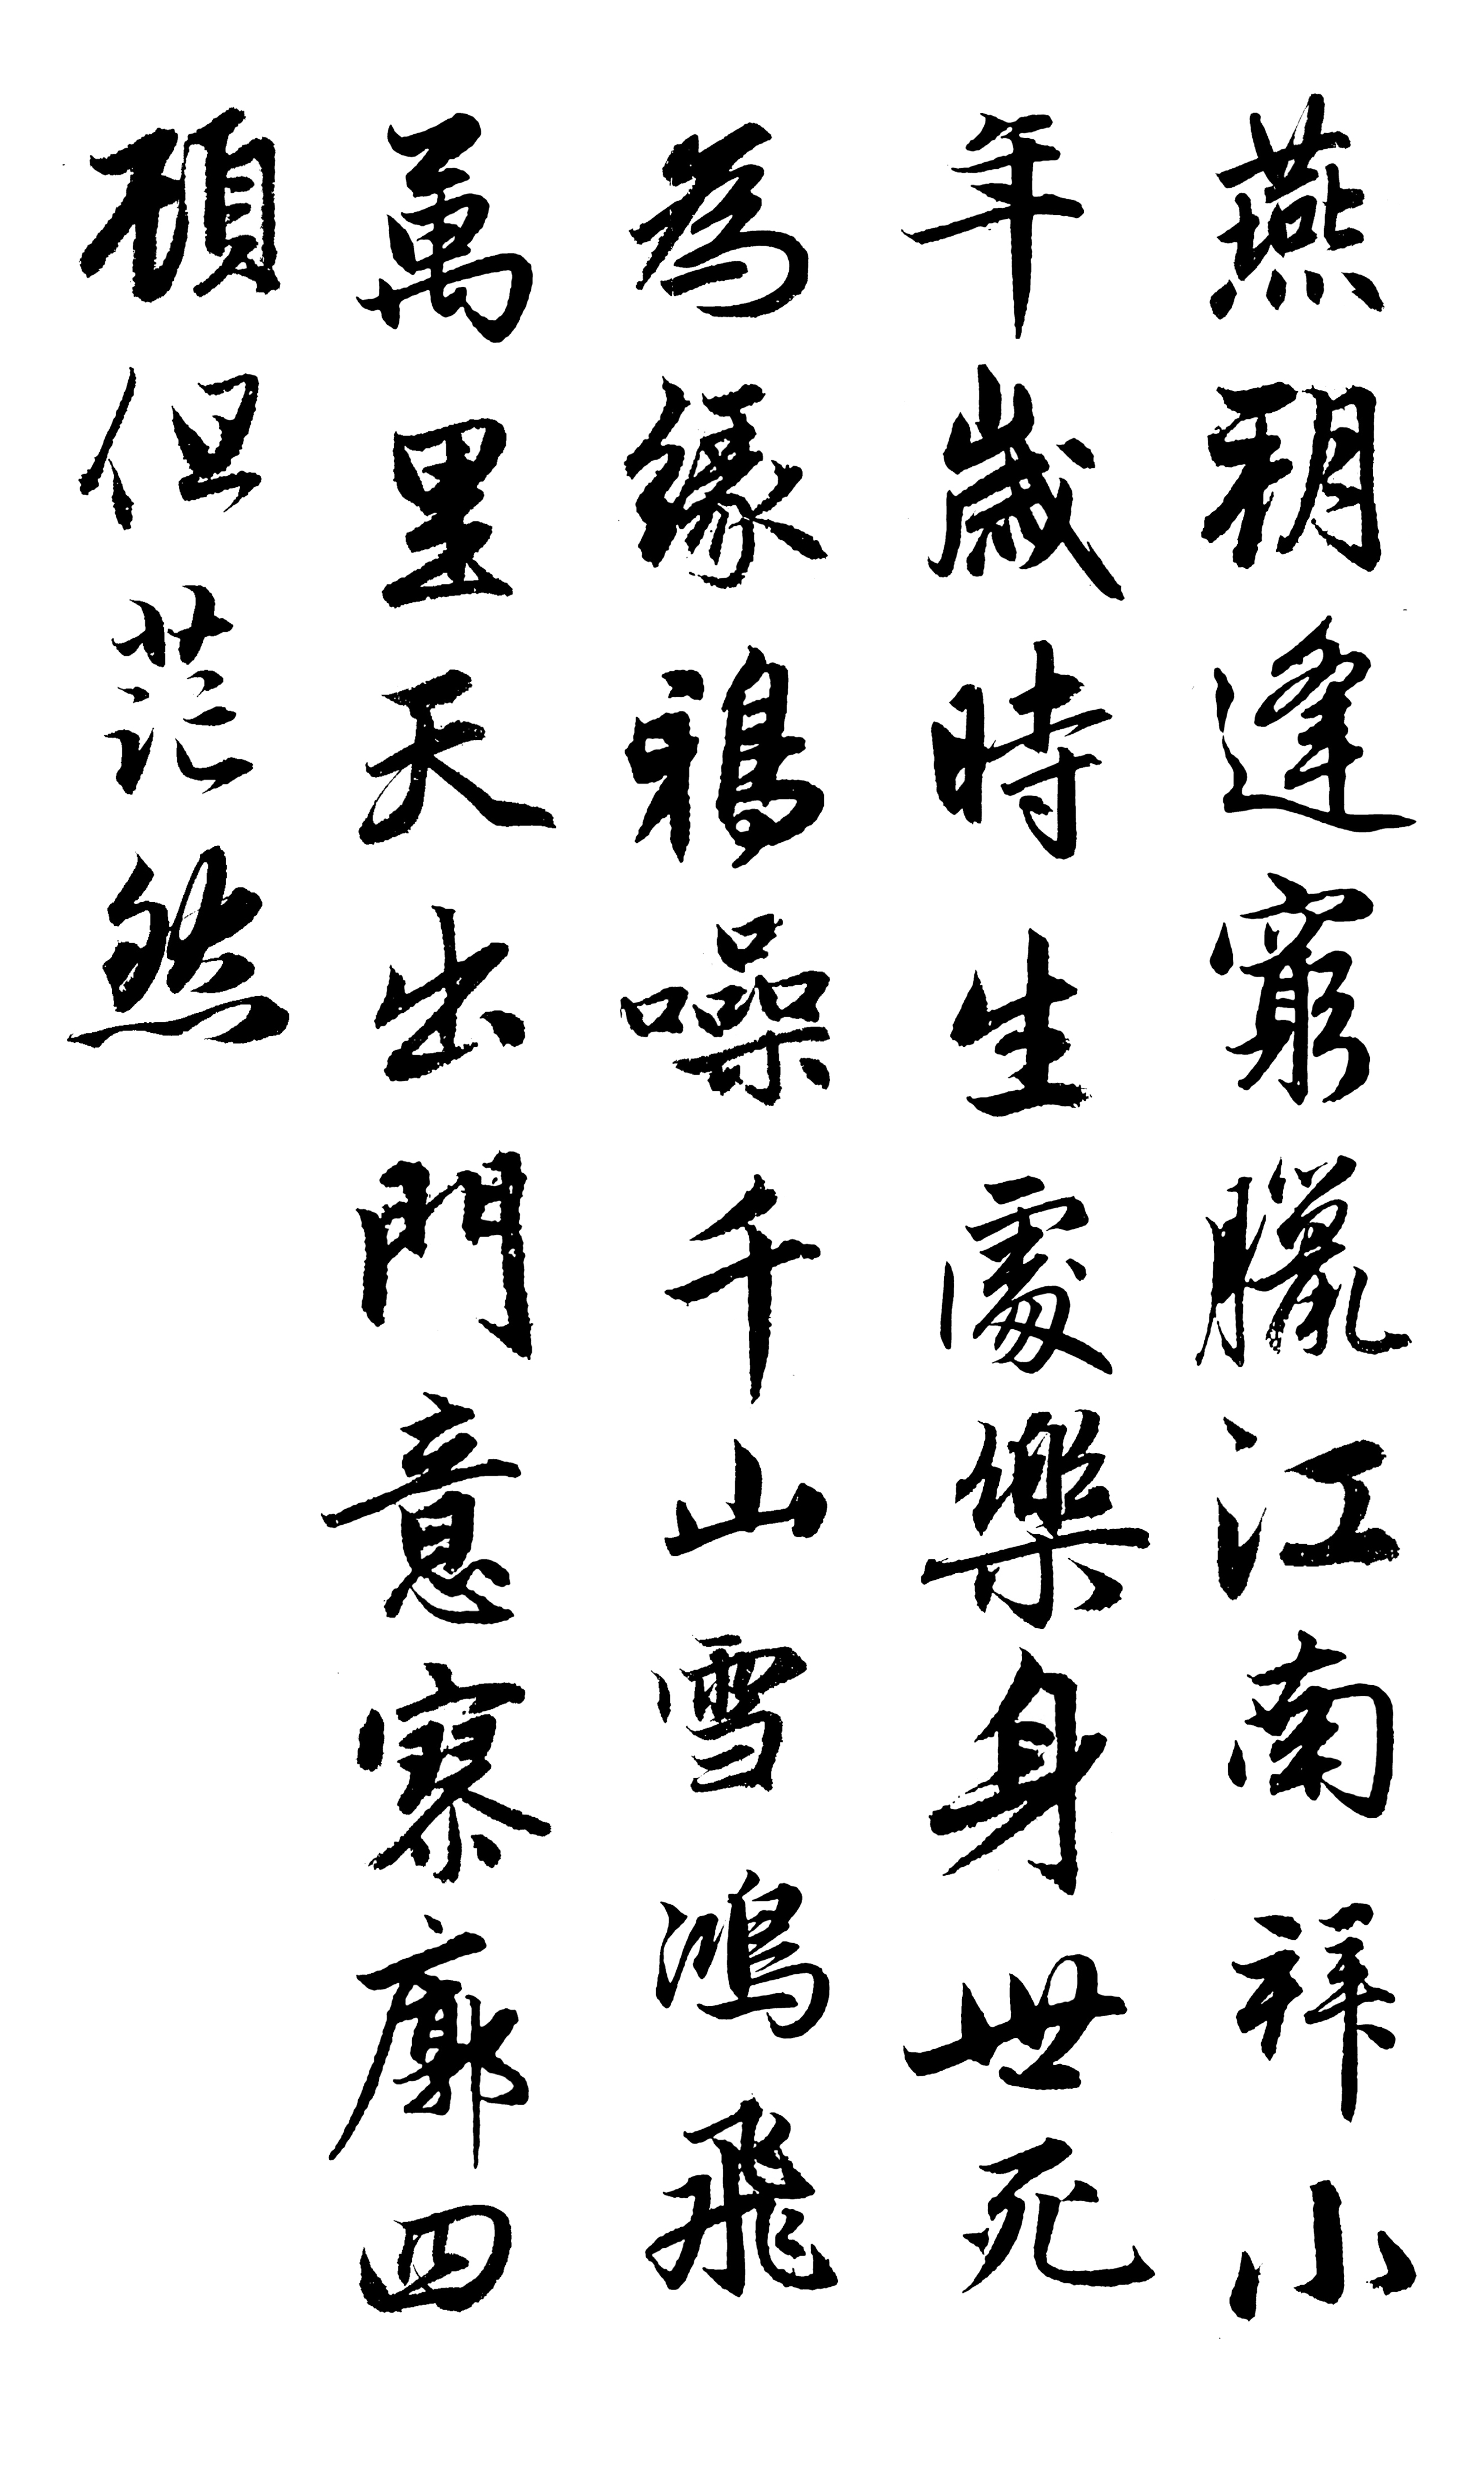 燕朔逢窮臘江南拜小
年歲時生處樂身世死
為緣鴉噪千山雪鴻飛
萬里天出門意寥廓四
顧但茫然